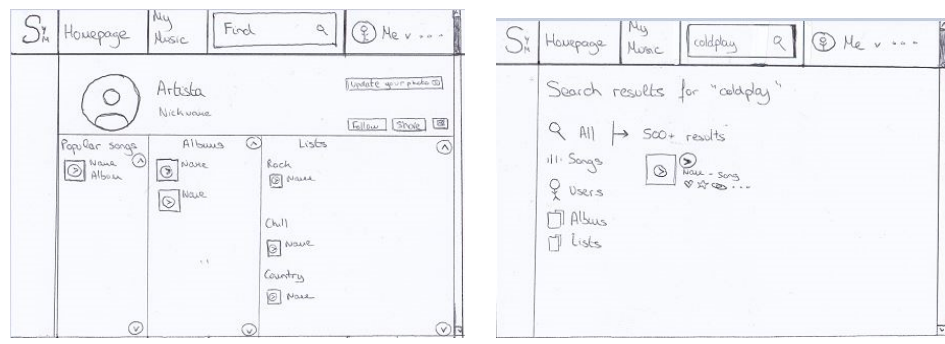 SYM Homepage My Music Find Me v ...
Artista
Nickname
Update your photo
Follow Share
Popular songs
Name
Album
Albums
Name
Name
Lists
Rock
Name
Chill
Name
Country
Name
SYM Homepage My Music coldplay Me v ...
Search results for "coldplay"
All 500+ results
Songs
Name - Song
...
Users
Albums
Lists